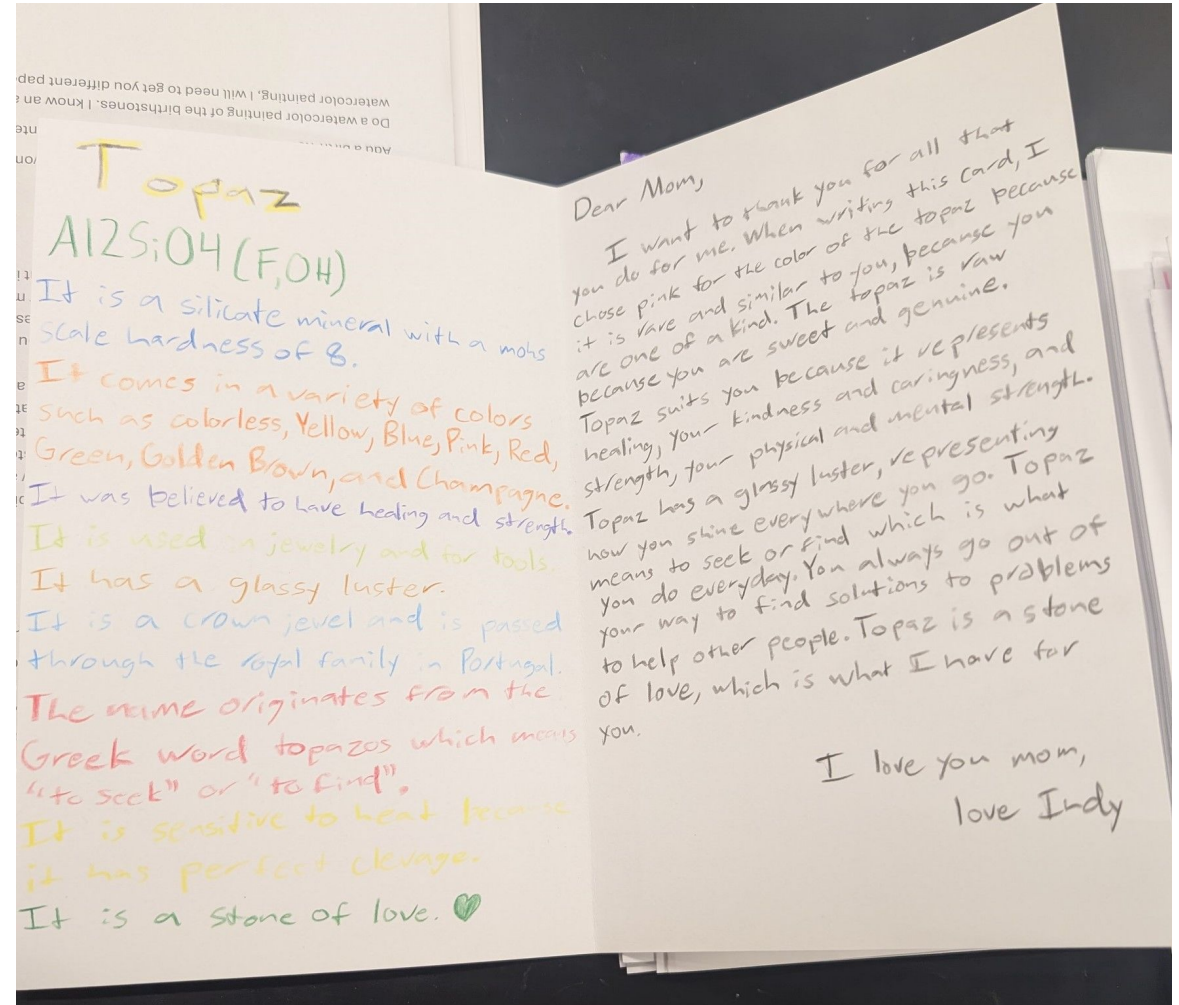 ded tnereffid uoy teg ot deen lliw I ,gnitniap rolocretaw
Do a watercolor painting of the birthstones. I know an a
watercolor painting, I will need to get you different pap
Topaz
Al2SiO4(F,OH)
It is a silicate mineral with a mohs
scale hardness of 8.
It comes in a variety of colors
such as colorless, Yellow, Blue, Pink, Red,
Green, Golden Brown, and Champagne.
It was believed to have healing and strength.
It is used in jewelry and for tools.
It has a glassy luster.
It is a crown jewel and is passed
through the royal family in Portugal.
The name originates from the
Greek word topazos which means
"to seek" or "to find".
It is sensitive to heat because
it has perfect clevage.
It is a stone of love.
Dear Mom,
I want to thank you for all that
you do for me. When writing this card, I
chose pink for the color of the topaz because
it is rare and similar to you, because you
are one of a kind. The topaz is raw
because you are sweet and genuine.
Topaz suits you because it represents
healing, your kindness and caringness, and
strength, your physical and mental strength.
Topaz has a glassy luster, representing
how you shine everywhere you go. Topaz
means to seek or find which is what
you do everyday. You always go out of
your way to find solutions to problems
to help other people. Topaz is a stone
of love, which is what I have for
you.
I love you mom,
love Indy